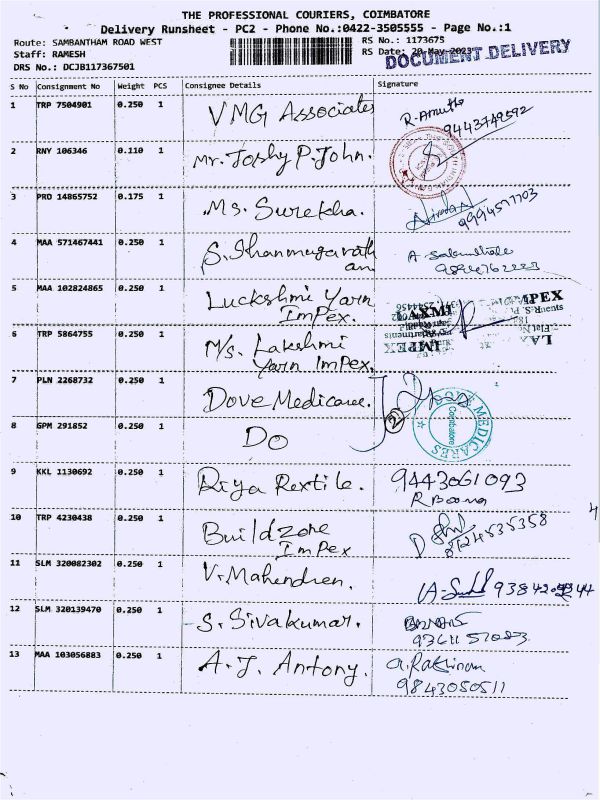 THE PROFESSIONAL COURIERS, COIMBATORE
Delivery Runsheet - PC2 - Phone No.:0422-3505555 - Page No.:1
Route: SAMBANTHAM ROAD WEST RS No.: 1173675
Staff: RAMESH RS Date: 20-May-2023
DRS No.: DCJB117367501 DOCUMENT DELIVERY
S No Consignment No Weight PCS Consignee Details Signature
1 TRP 7504901 0.250 1 VMG Associates R. Amutha
9443749592
2 RNY 106346 0.110 1 Mr. Joshy P. John.
3 PRO 14865752 0.175 1 Ms. Surekha.
9994577703
4 MAA 571467441 0.250 1 S. Shanmugarath
an
5 MAA 102824865 0.250 1 Luckshmi Yarn
ImPex.
6 TRP 5864755 0.250 1 M/s. Lakshmi
Yarn ImPex.
IMPEX
7 PLN 2268732 0.250 1 Dove Medicaree.
8 GPM 291852 0.250 1 DO
2
MEDICARES
Coimbatore
9 KKL 1130692 0.250 1 Riya Rextile. 9443061093
10 TRP 4230438 0.250 1 Buildzone
ImPex
8124535358
11 SLM 320082302 0.250 1 V. Mahendren.
12 SLM 320139470 0.250 1 S. Sivakumar.
13 MAA 103056883 0.250 1 A. J. Antony.
9843050511